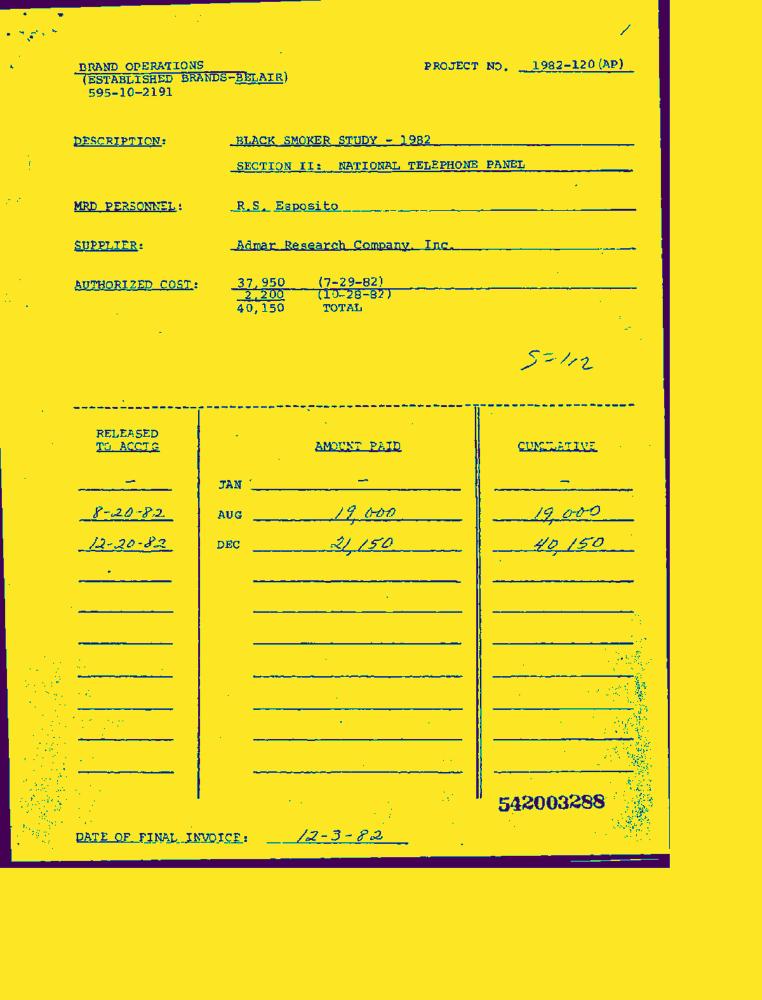 BRAND OPERATIONS
(ESTABLISHED BRANDS-BELAIR)
595-10-2191
PROJECT NO. 1982-120(AP)
DESCRIPTION: BLACK SMOKER STUDY - 1982
SECTION II: NATIONAL TELEPHONE PANEL
MRD PERSONNEL: R.S. Esposito
SUPPLIER: Admar Research Company, Inc.
AUTHORIZED COST: 37,950 (7-29-82)
2,200 (10-28-82)
40,150 TOTAL
RELEASED TO ACCTG AMOUNT PAID CUMULATIVE
- JAN - -
8-20-82 AUG 19,000 19,000
12-20-82 DEC 21,150 40,150
542003288
DATE OF FINAL INVOICE: 12-3-82